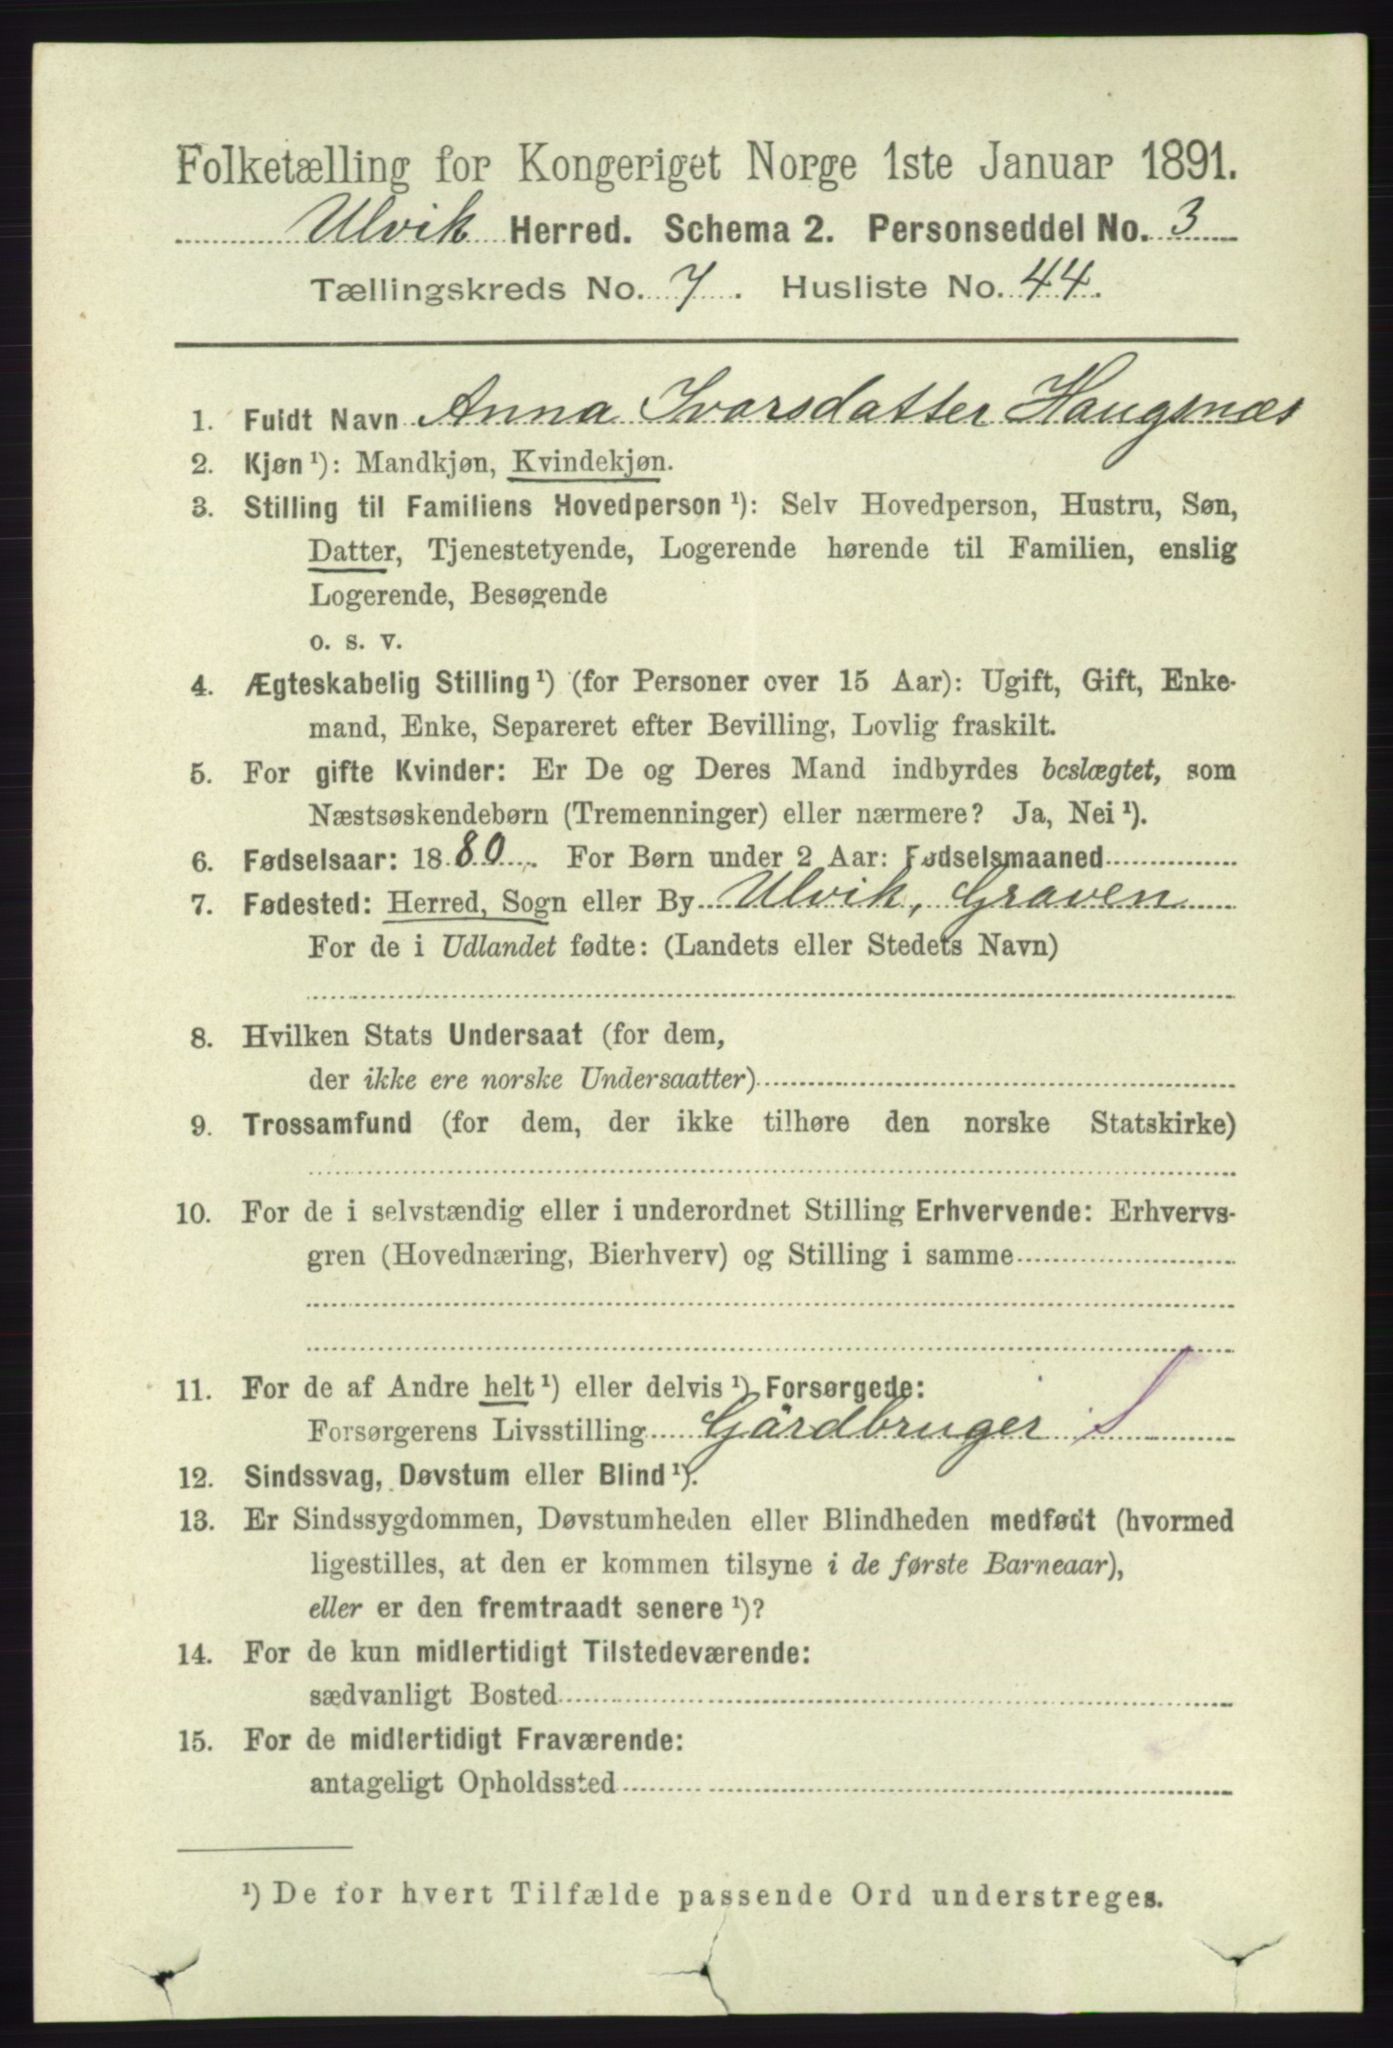 Folketælling for Kongeriget Norge 1ste Januar 1891.
Ulvik Herred. Schema 2. Personseddel No. 3
Tællingskreds No. 7. Husliste No. 44.
1. Fuldt Navn Anna Ivarsdatter Haugsnæs
2. Kjøn ¹): Mandkjøn, Kvindekjøn.
3. Stilling til Familiens Hovedperson ¹): Selv Hovedperson, Hustru, Søn,
Datter, Tjenestetyende, Logerende hørende til Familien, enslig
Logerende, Besøgende
o. s. v.
4. Ægteskabelig Stilling ¹) (for Personer over 15 Aar): Ugift, Gift, Enke-
mand, Enke, Separeret efter Bevilling, Lovlig fraskilt.
5. For gifte Kvinder: Er De og Deres Mand indbyrdes beslægtet, som
Næstsøskendebørn (Tremenninger) eller nærmere? Ja, Nei ¹).
6. Fødselsaar: 1880. For Børn under 2 Aar: Fødselsmaaned
7. Fødested: Herred, Sogn eller By Ulvik, Graven
For de i Udlandet fødte: (Landets eller Stedets Navn)
8. Hvilken Stats Undersaat (for dem,
der ikke ere norske Undersaatter)
9. Trossamfund (for dem, der ikke tilhøre den norske Statskirke)
10. For de i selvstændig eller i underordnet Stilling Erhvervende: Erhvervs-
gren (Hovednæring, Bierhverv) og Stilling i samme
11. For de af Andre helt ¹) eller delvis ¹) Forsørgede:
Forsørgerens Livsstilling Gårdbruger S
12. Sindssvag, Døvstum eller Blind ¹).
13. Er Sindssygdommen, Døvstumheden eller Blindheden medfødt (hvormed
ligestilles, at den er kommen tilsyne i de første Barneaar),
eller er den fremtraadt senere ¹)?
14. For de kun midlertidigt Tilstedeværende:
sædvanligt Bosted
15. For de midlertidigt Fraværende:
antageligt Opholdssted
¹) De for hvert Tilfælde passende Ord understreges.